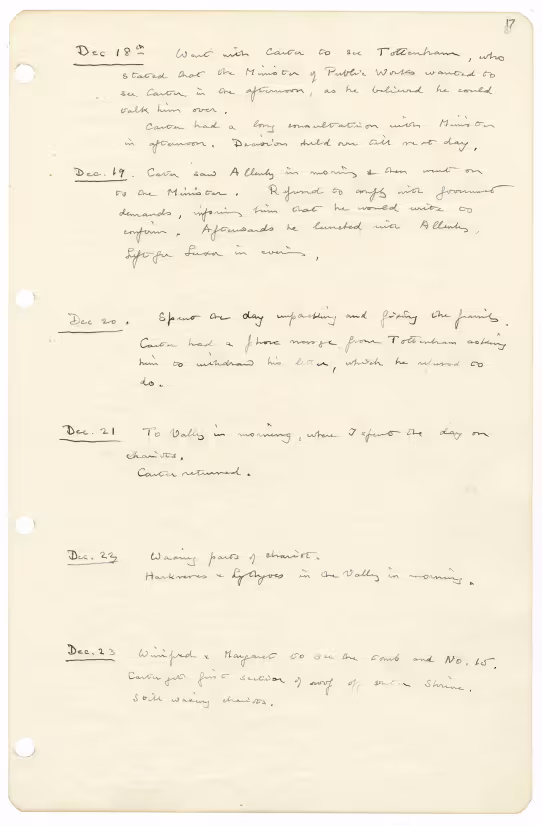 17
Dec 18th Went with Carter to see Tottenham, who
stated that the Minister of Public Works wanted to
see Carter in the afternoon, as he believed he could
talk him over.
Carter had a long consultation with Minister
in afternoon. Decision held over till next day.
Dec. 19. Carter saw Allenby in morning & then went on
to the Minister. Refused to comply with government
demands, informing him that he would write to
confirm. Afterwards he lunched with Allenby.
Left for Luxor in evening.
Dec 20. Spent the day unpacking and fixing the family.
Carter had a phone message from Tottenham asking
him to withdraw his letter, which he refused to
do.
Dec. 21 To Valley in morning, where I spent the day on
chariots.
Carter returned.
Dec. 22 Waxing parts of chariot.
Harknesses & Lythgoes in the Valley in morning.
Dec. 23 Winifred & Margaret to see the tomb and No. 15.
Carter got first section of roof off outer Shrine.
Still waxing chariots.